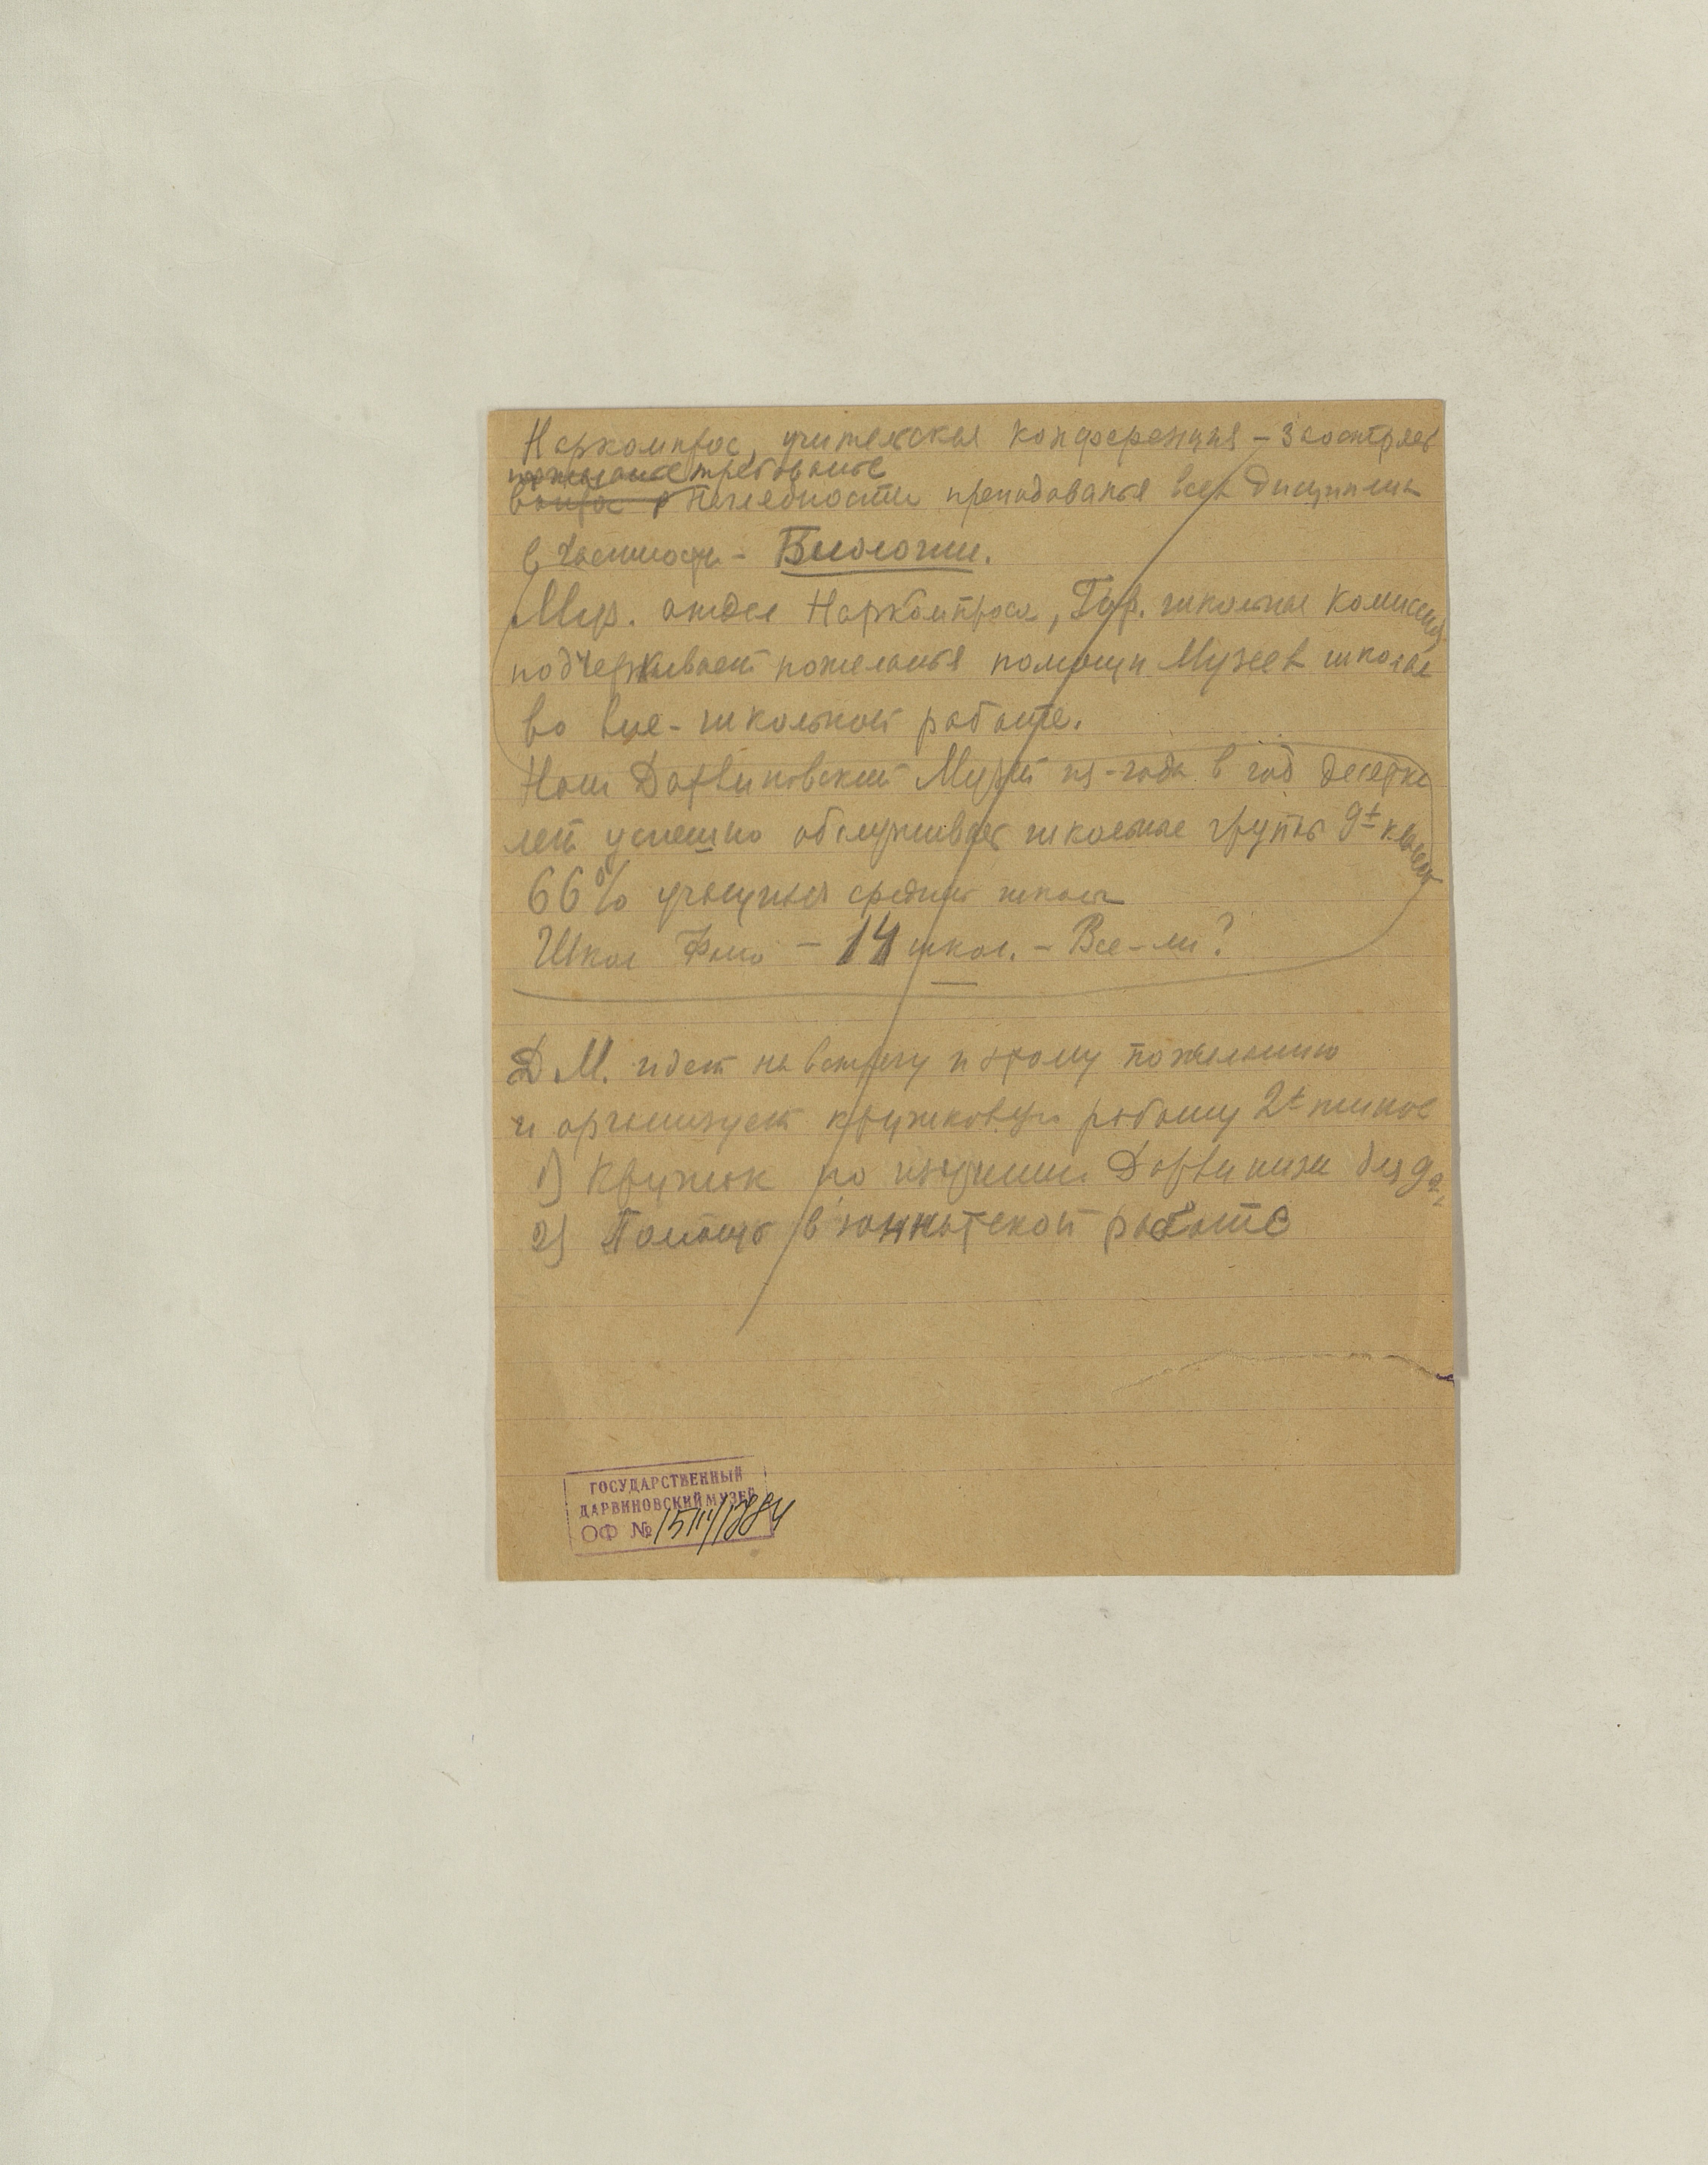 Наркомпрос, учительская конференция – заостряет
пожелание требованье
вопрос о наглядности преподаванья всех дисциплин
в частности – Биологии.
Муз. отдел Наркомпроса, Гор. школьные комиссии
подчеркивает пожеланья помощи Музеев школам
во вне-школьной работе.
Наш Дарвиновский Музей из-года в год десятки
лет успешно обслуживает школьные группы 9х классов
66% учащихся средних школ
Школ Фзо – 14 школ. – Все-ли?
Д М. идет на встречу к этому пожеланию
и организует кружковую работу 2х типов
1) Кружок по изучению Дарвинизма для 9х
2) Помощь в юннатской работе
ГОСУДАРСТВЕННЫЙ
ДАРВИНОВСКИЙ МУЗЕЙ
ОФ №